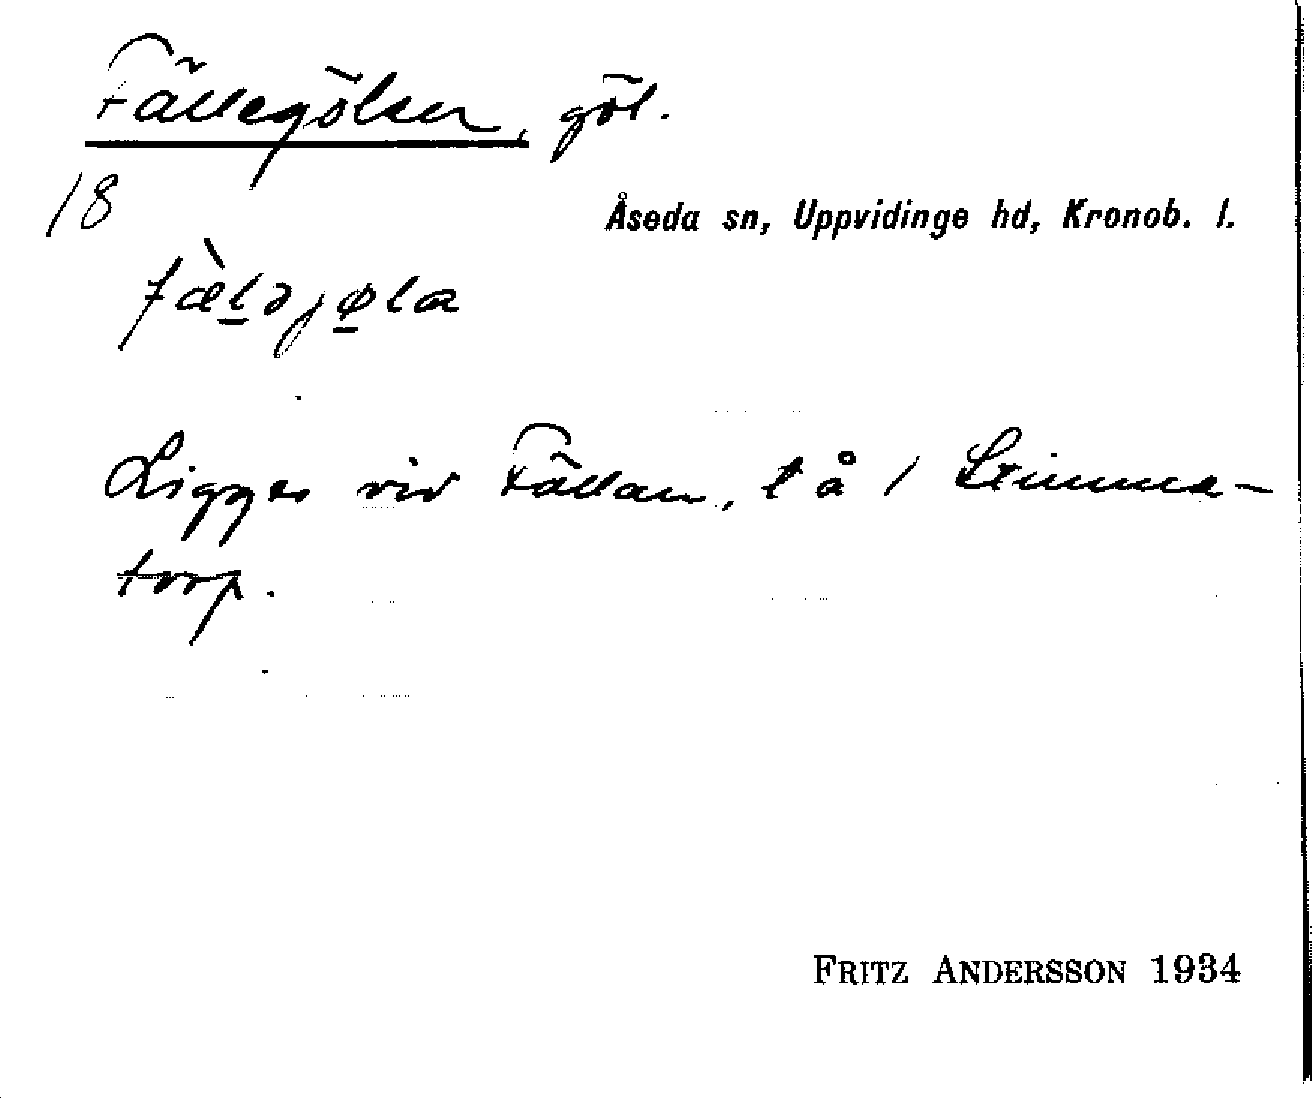 Fällegölen, göl.
18
Åseda sn, Uppvidinge hd, Kronob. l.
fæ̀l̲əjø̲la
Ligger vid Fällan, l å 1 Stimma-
torp.
FRITZ ANDERSSON 1934